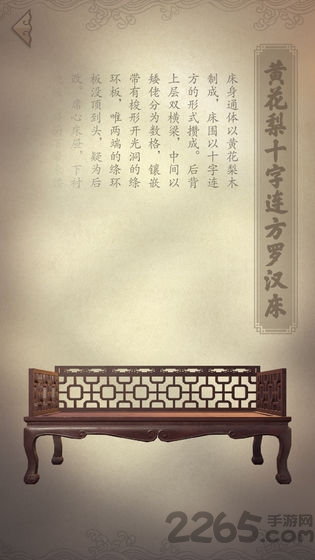 黄花梨十字连方罗汉床
床身通体以黄花梨木
制成，床围以十字连
方的形式攒成。后背
上层双横梁，中间以
矮佬分为数格，镶嵌
带有梭形开光洞的绦
环板，唯两端的绦环
板没顶到头，疑为后
改。席心床屉，下衬
2265.com
手游网